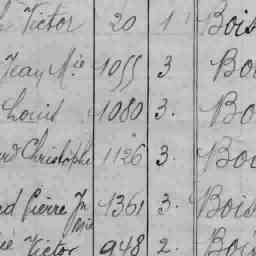 Victor 20 1 Bois
Jean Mie 1055 3 Bo
Louis 1080 3. Bo
Christophe 1126 3. Boi
Pierre Jn Mie 1361 3. Bois
Victor 948 2. Bois